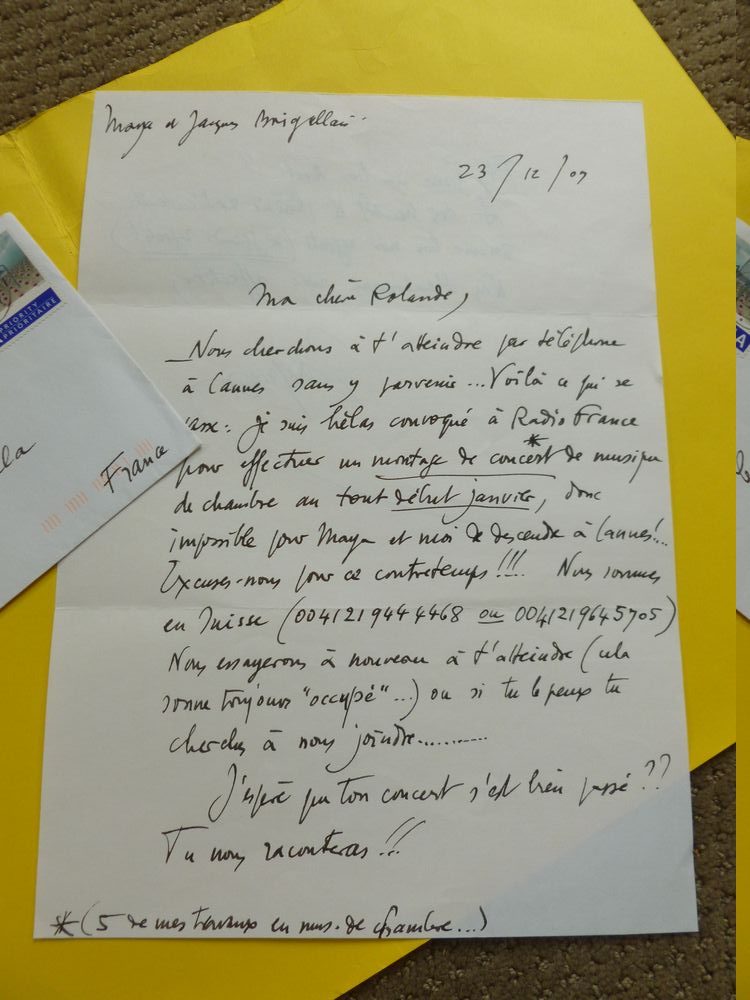 Maya et Jacques
23/12/09
Ma chère Rolande,
Nous cherchons à t'atteindre par téléphone
à Cannes sans y parvenir... Voilà ce qui se
passe : je suis hélas convoqué à Radio France
pour effectuer un montage de concert* de musique
de chambre au tout début janvier, donc
impossible pour Maya et moi de descendre à Cannes!...
Excuses-nous pour ce contretemps!!! Nous sommes
en Suisse (0041219444468 ou 0041219645705)
Nous essayerons à nouveau à t'atteindre (cela
sonne toujours "occupé"...) ou si tu le peux tu
cherches à nous joindre..........
J'espère que ton concert s'est bien passé ??
Tu nous raconteras !!!
*(5 de mes travaux en mus. de chambre...)
PRIORITY
PRIORITAIRE
la
France
A